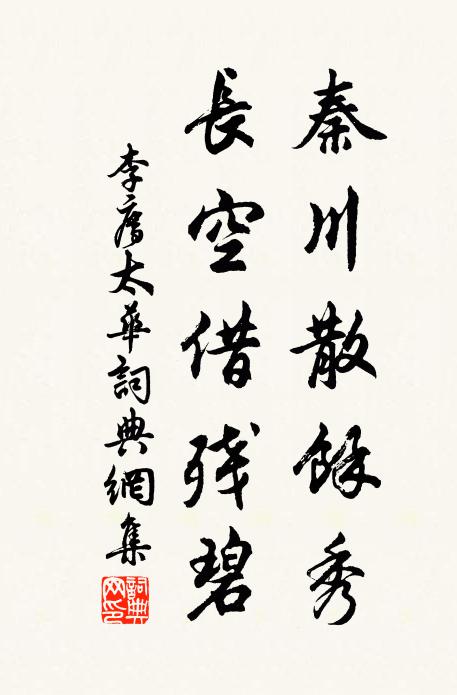 秦川散餘秀
長空借残碧
李廌太華詞典網集
詞典网印